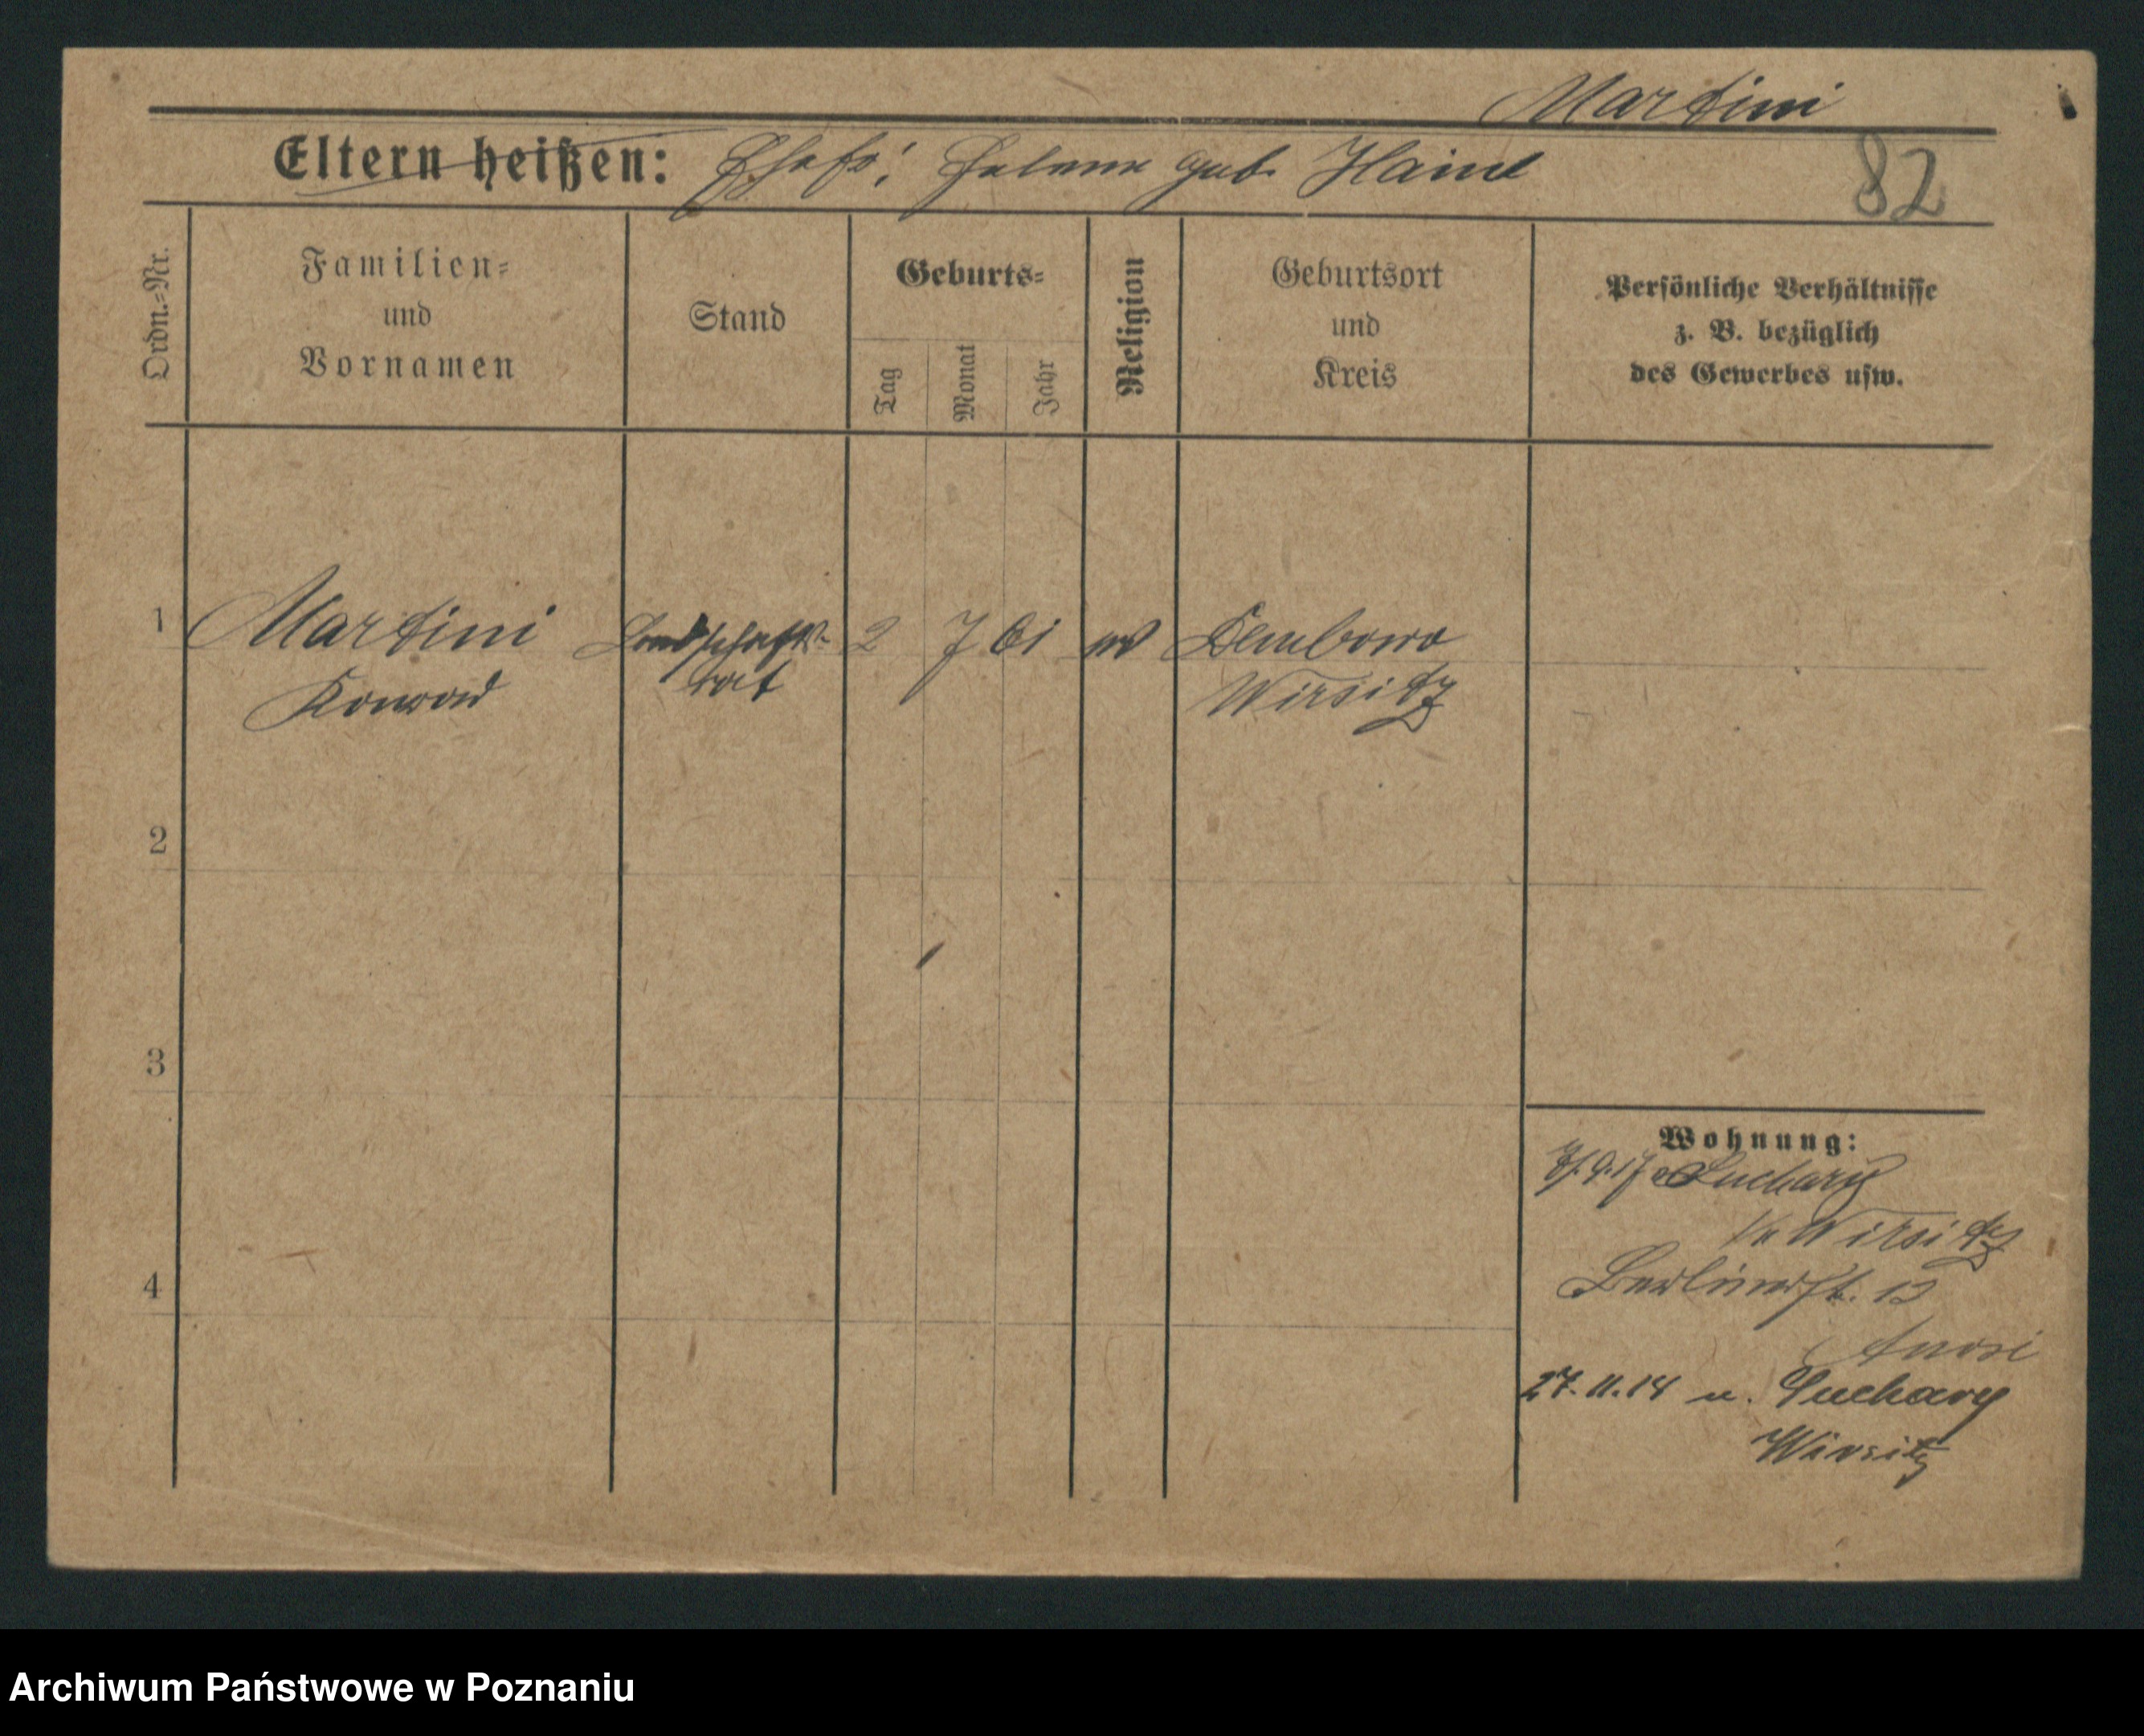 Martini
Eltern heißen: Ehefr: Helene geb. Haine
82
Ordn.-Nr.
Familien-
und
Vornamen
Stand
Geburts-
Tag
Monat
Jahr
Religion
Geburtsort
und
Kreis
Persönliche Verhältnisse
z. B. bezüglich
des Gewerbes usw.
1 Martini Landschafts- 2 7 61 ev Dembowo
Konrad rat Wirsitz
2
3
4
Wohnung:
9.17 Suchary
Wirsitz
Berlinerstr. 13
27.11.14 n. Suchary
Wirsitz
Archiwum Państwowe w Poznaniu